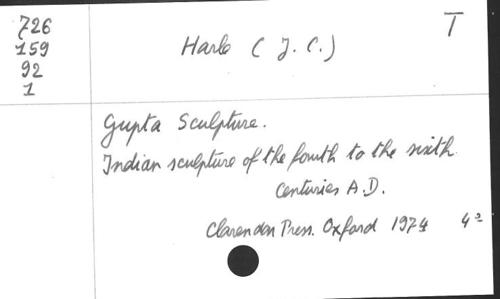 726
159
92
1
T
Harle (J. C.)
Gupta Sculpture.
Indian sculpture of the fourth to the sixth
Centuries A.D.
Clarendon Press. Oxford 1974 4°